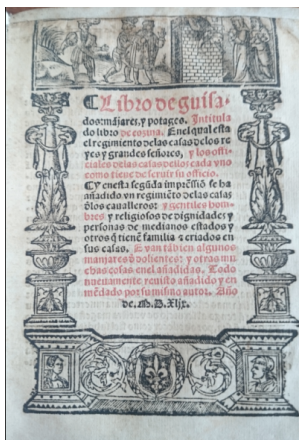 Libro de guisa-
dos: mãjares, y potages. Intitula
do libro de cozina. Enel qual esta
el regimiento delas casas delos re
yes y grandes señores, y los offi-
ciales delas casas dellos cada vno
como tiene de seruir su officio.
Cy enesta següda impressiõ se ha
añadido vn regimiẽto delas casas
dlos caualleros: y gentiles hom-
bres y religiosos de dignidades y
personas de medianos estados y
otros q̃ tienẽ familia y criados en
sus casas. E van tãbien algunos
manjares d̃ dolientes: y otras mu
chas cosas enel añadidas. Todo
nueuamente reuisto añadido y en
mẽdado por su mismo autor. Año
de. M. D. Xliȷ.